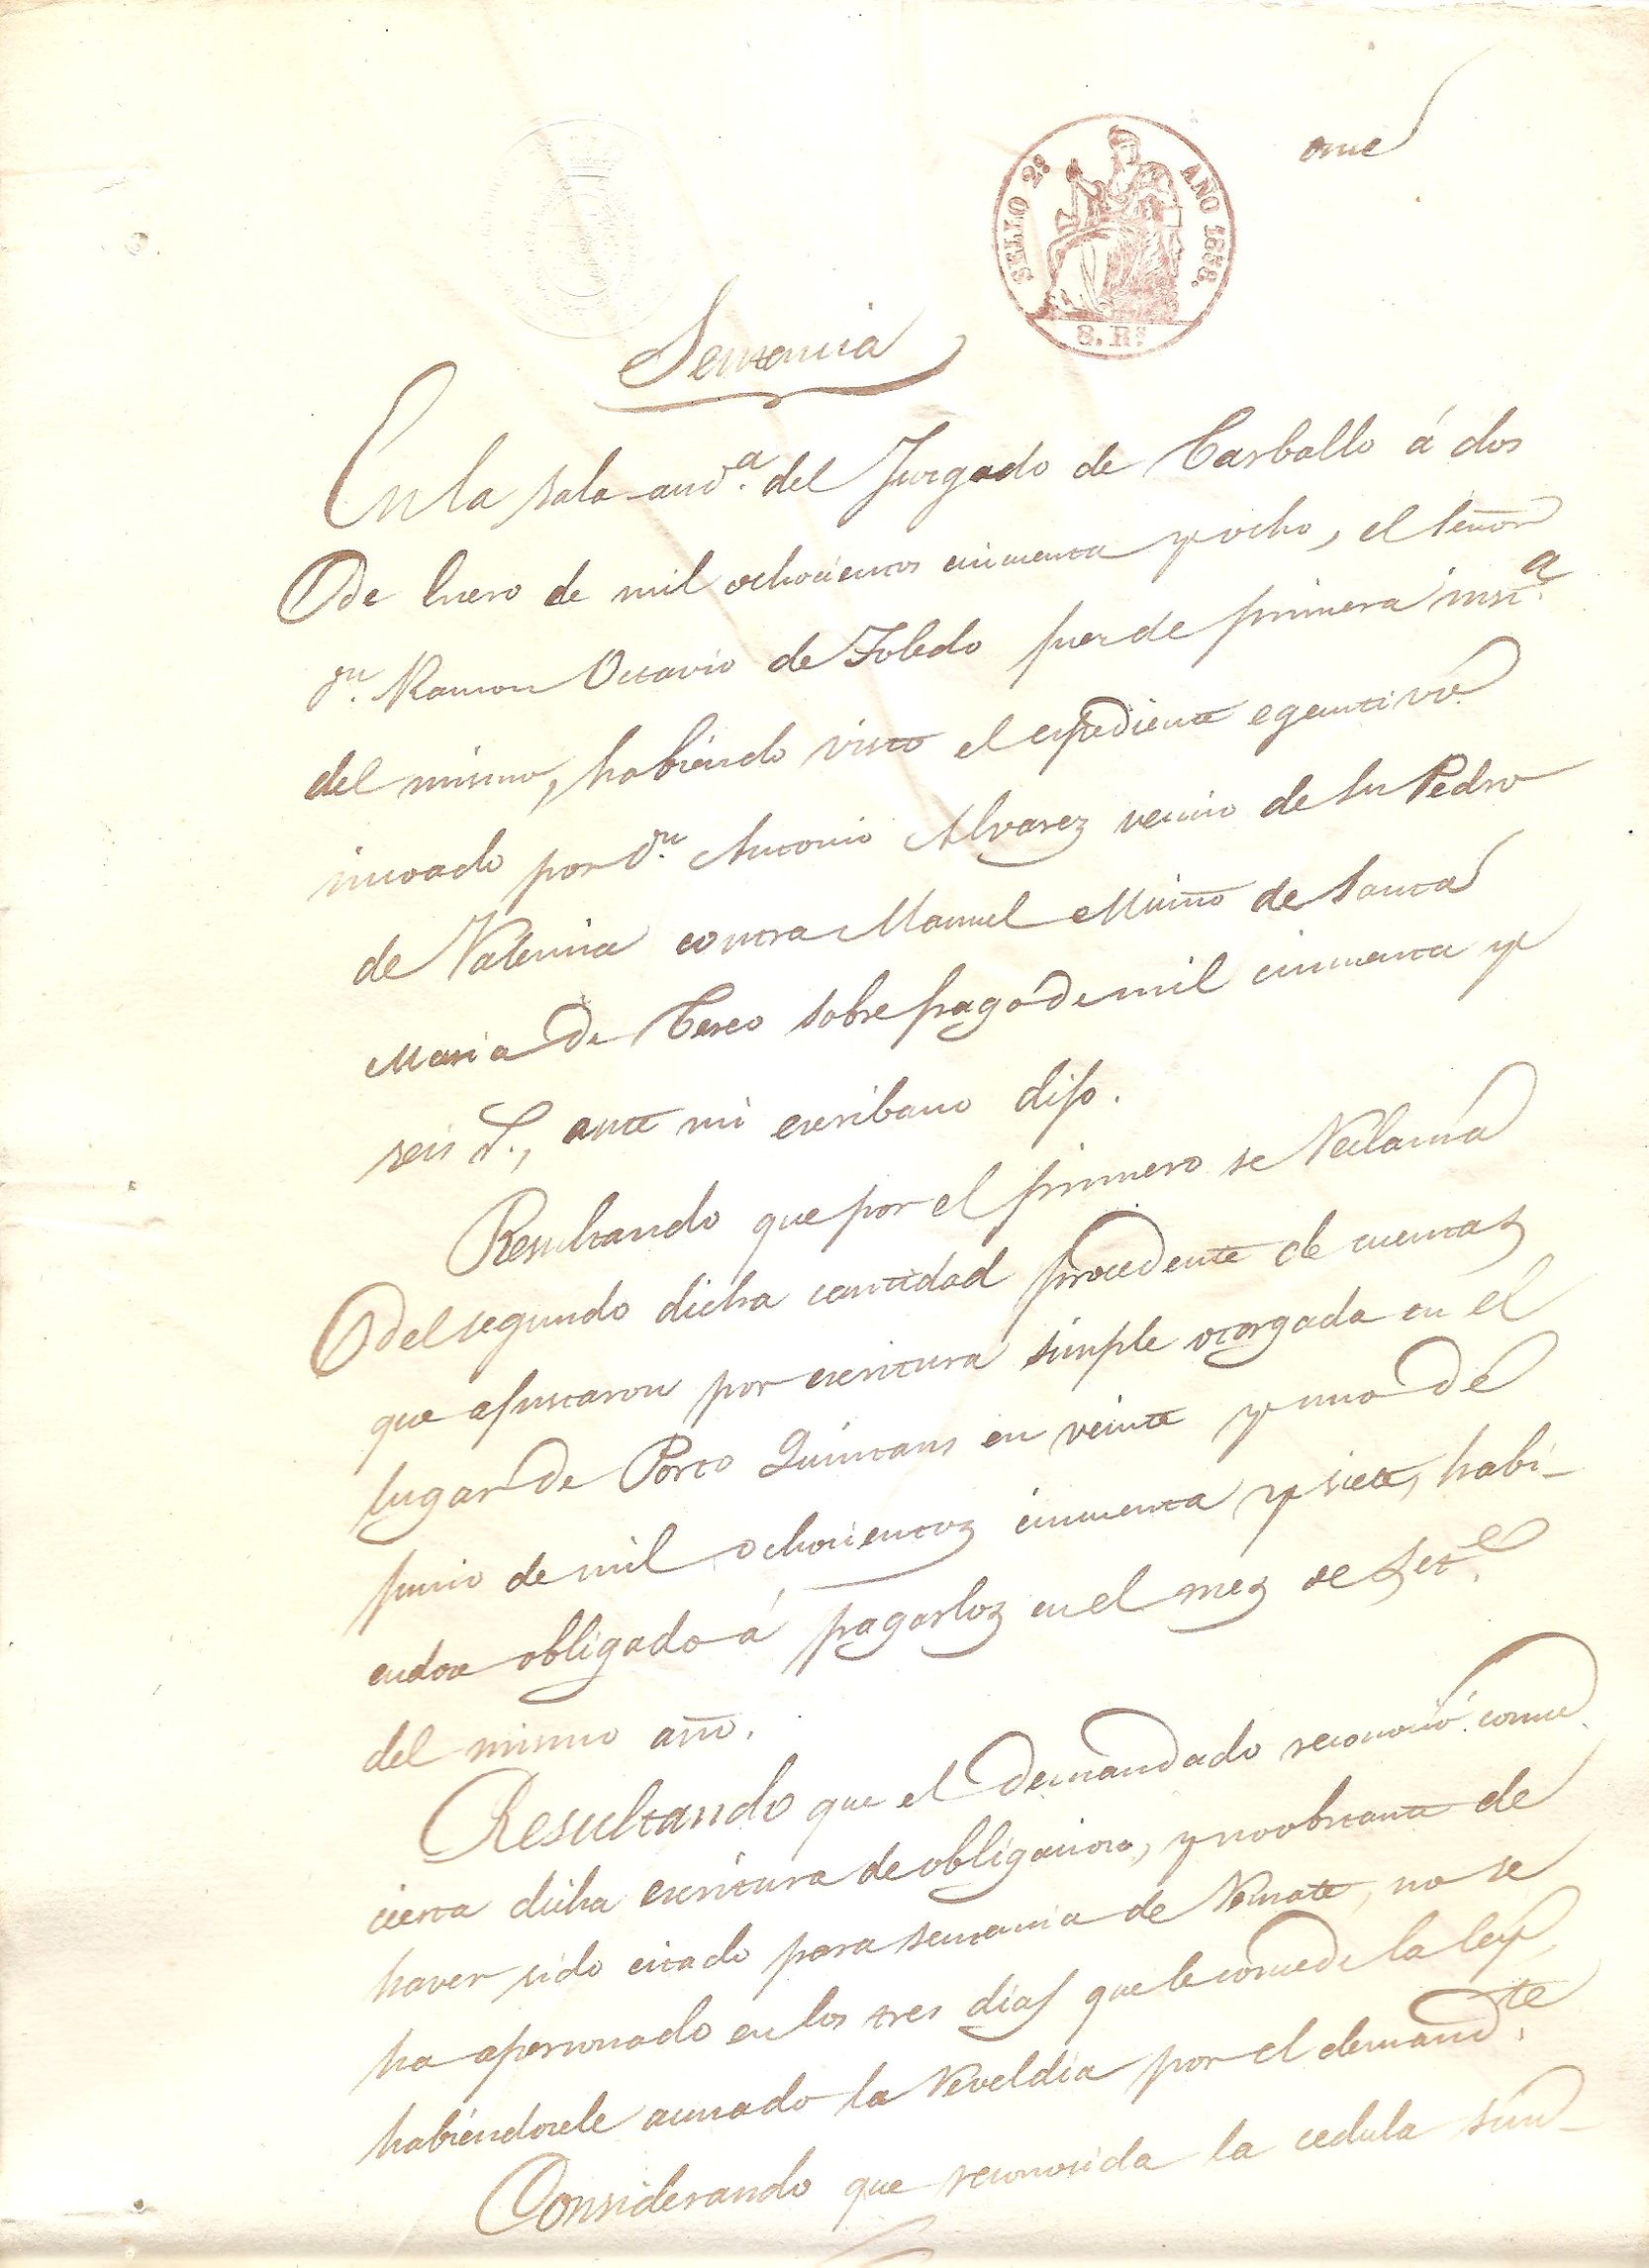 once
SELLO 2º AÑO 1858.
8. Rs
Sentencia
En la sala aud.ª del Juzgado de Carballo á dos
de Enero de mil ochocientos cincuenta y ocho, el Señor
Dn. Ramon Octavio de Toledo juez de primera inst.ª
del mismo, habiendo visto el espediente egecutivo
incoado por Dn. Antonio Alvarez vecino de Sn Pedro
de Valencia contra Manuel Muiño de Santa
Maria de Cereo sobre pago de mil cincuenta y
seis rs., ante mi escribano dijo.
Resultando que por el primero se Reclama
del segundo dicha cantidad procedente de cuentas
que ajustaron por escritura simple otorgada en el
lugar de Porto Quintans en veinte y uno de
junio de mil ochocientoz cincuenta y siete, habi-
endose obligado á pagarloz en el mez de Set.e
del mismo año.
Resultando que el demandado reconoció como
cierta dicha escritura de obligacion, y no obstante de
haver sido citado para sentencia de Remate, no se
ha apersonado en los tres dias que le concede la ley,
habiendosele acusado la Reveldia por el demand.te
Considerando que reconocida la cedula sim-